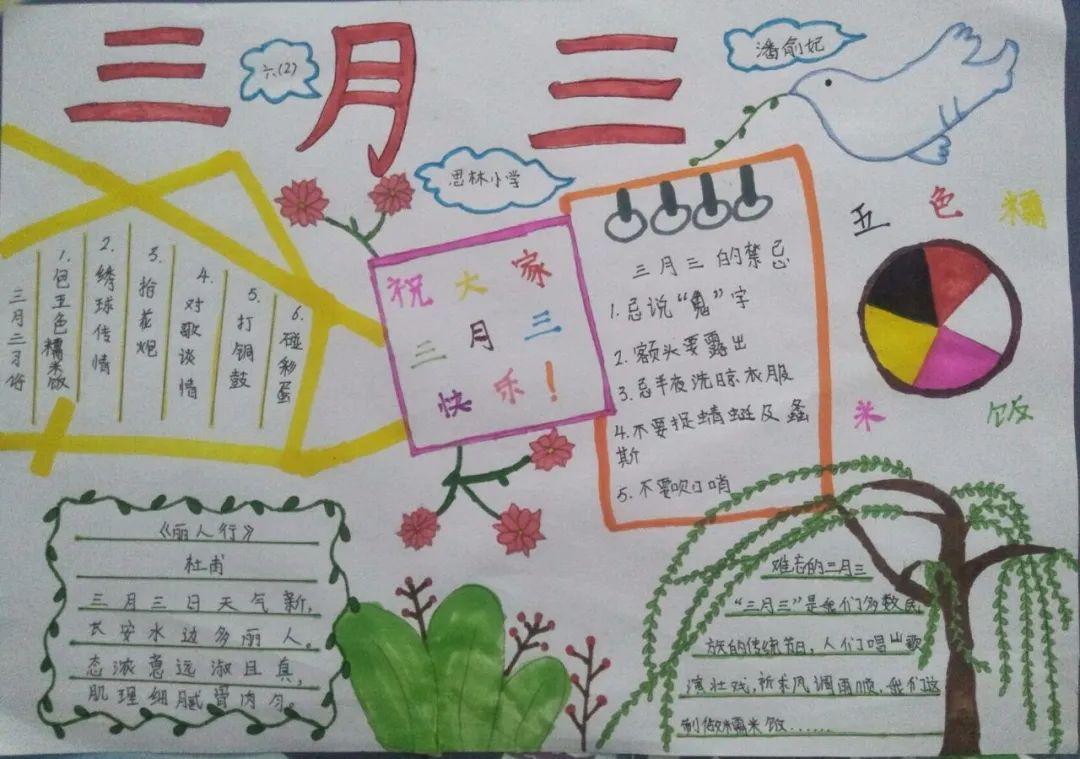 三月三
六(2)
潘俞妃
思林小学
三月三习俗
1.包五色糯米饭
2.绣球传情
3.抬花炮
4.对歌谈情
5.打铜鼓
6.碰彩蛋
祝大家
三月三
快乐！
三月三的禁忌
1.忌说“鬼”字
2.额头要露出
3.忌半夜洗晾衣服
4.不要捉蜻蜓及螽
斯
5.不要吹口哨
五色糯
米饭
《丽人行》
杜甫
三月三日天气新，
长安水边多丽人。
态浓意远淑且真，
肌理细腻骨肉匀。
难忘的三月三
“三月三”是我们少数民
族的传统节日，人们唱山歌
演壮戏，祈求风调雨顺，我们这
制做糯米饭……